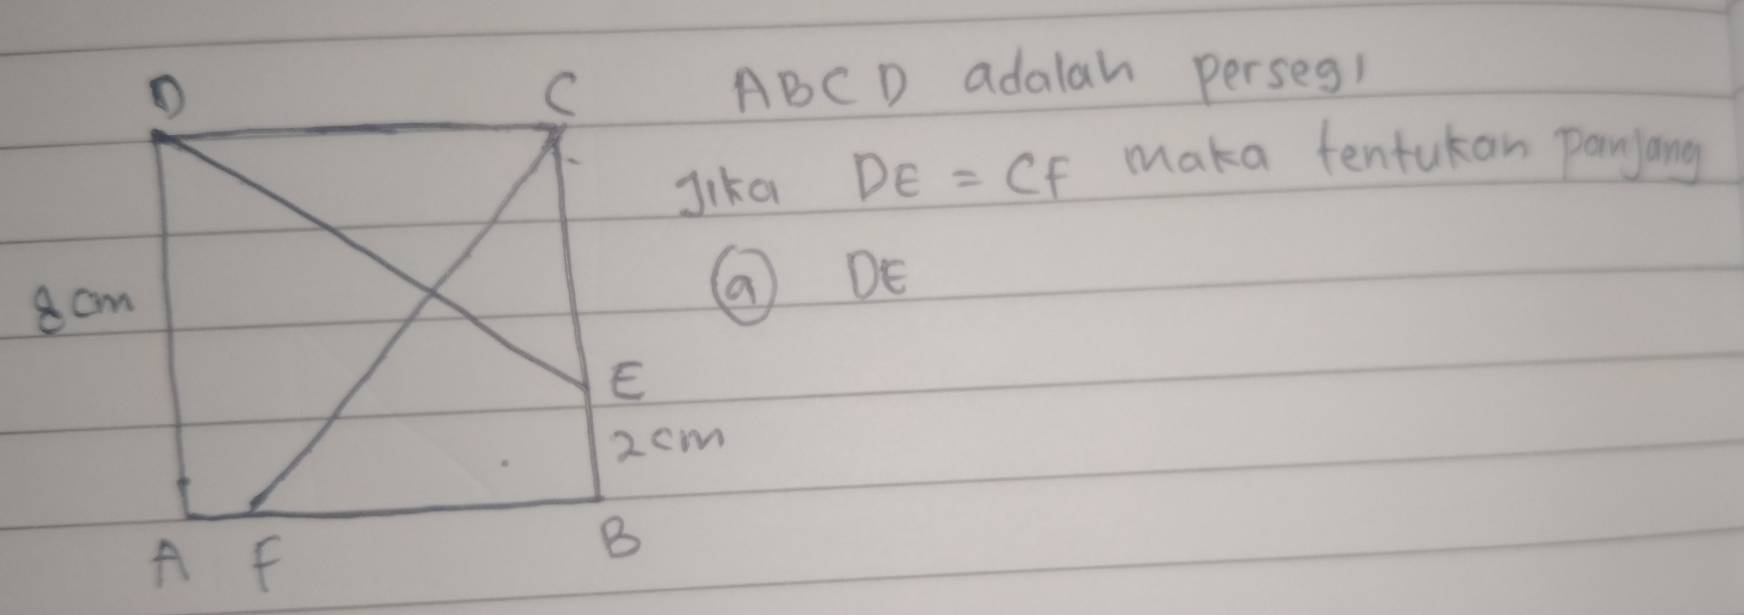 D C ABCD adalah persegi
Jika DE = CF maka tentukan panjang
8 cm ⓐ DE
E
2 cm
A F B